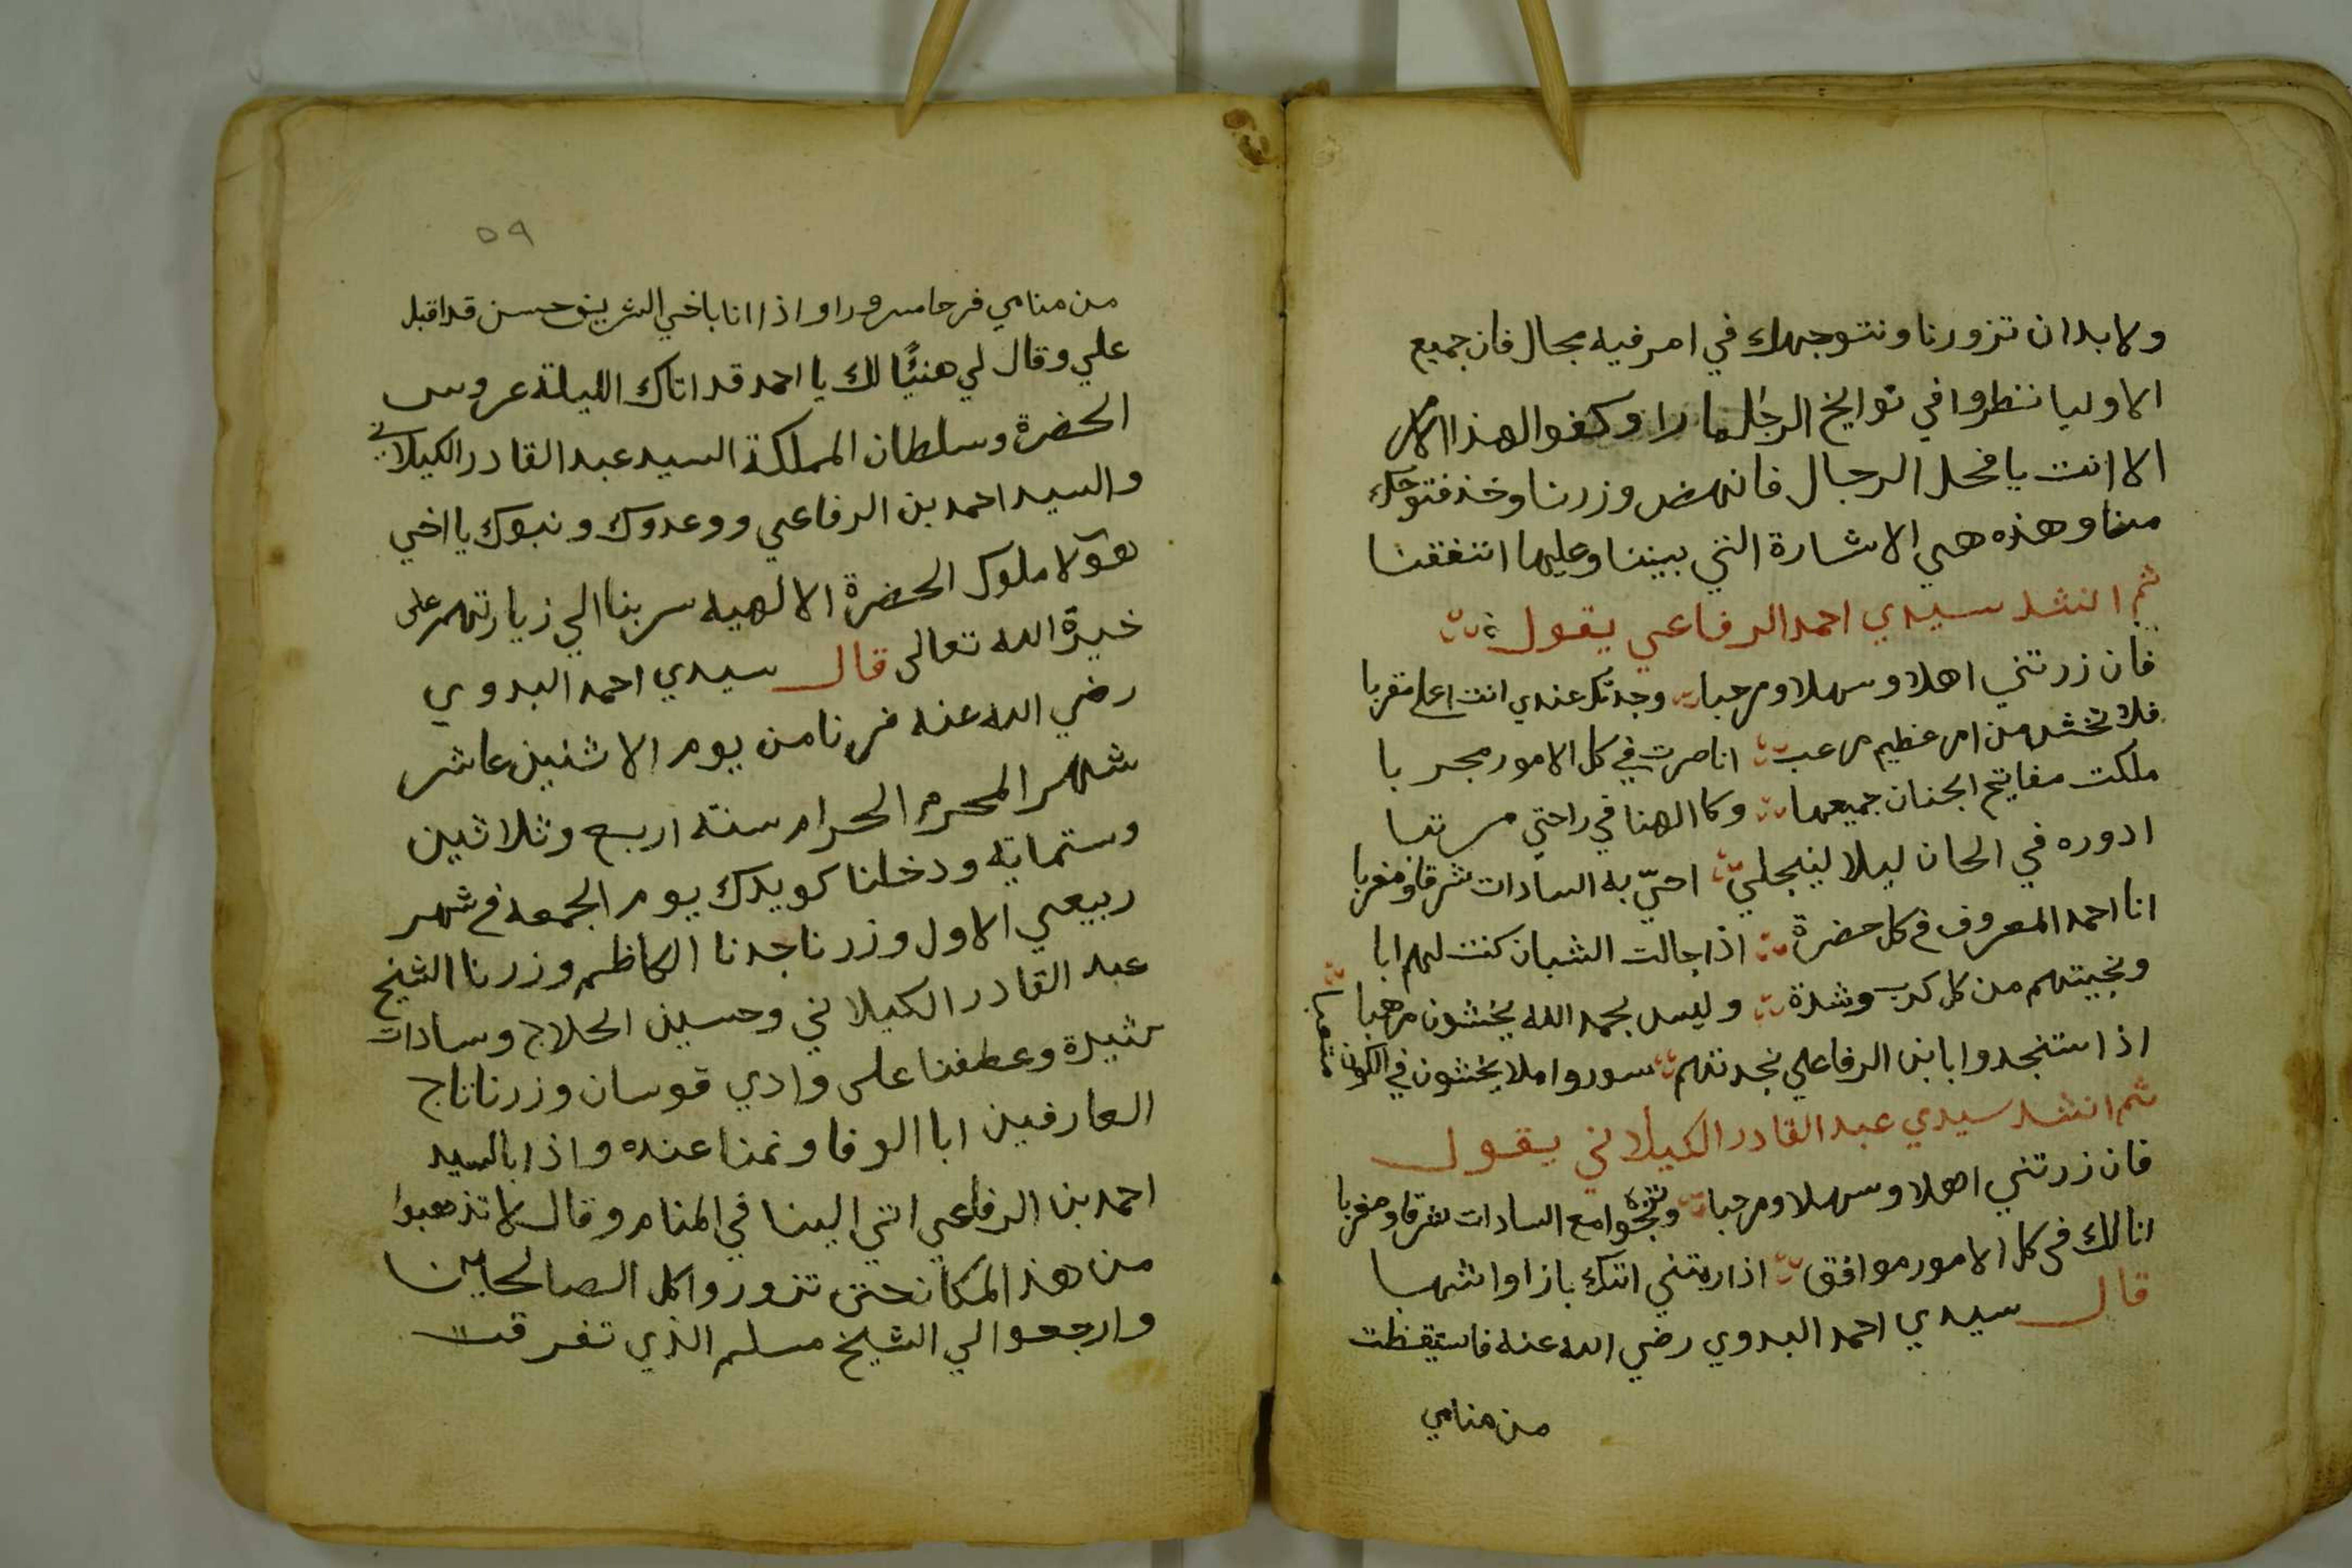 ولابد ان تزورنا ونتوجهك في امر فيه مجال فان جميع
الاوليا نتطروا في توايخ الرجل ما را وكفوا لهذا الامر
الا انت يا فحل الرجال فانهض وزرنا وخذ فتوحك
منا وهذه هي الاشارة التي بيننا وعليها اتفقنا
ثم انشد سيدي احمد الرفاعي يقول
فان زرتني اهلا وسهلا ومرحبا وجدتك عندي انت اعلا مقربا
فلا تخش من امر عظيم مرعب انا صرت في كل الامور مجربا
ملكت مفاتيح الجنان جميعها وكا الهنا في راحتي مرتبا
ادوره في الحان ليلا لينجلي احيّ به السادات شرقا ومغربا
انا احمد المعروف في كل حضرة اذا جالت الشبان كنت لهم ابا
ونجيتهم من كل كرب وشدة وليس بحمد الله يخشون مرهبا
اذا ستنجدوا بابن الرفاعي نجدتهم سوروا ملا يخشون في الكون متعبا
ثم انشد سيدي عبد القادر الكيلاني يقول
فان زرتني اهلا وسهلا ومرحبا وتنجوا مع السادات شرقا ومغربا
انا لك في كل الامور موافق اذا ريتني اتتك بازا واشهبا
قال سيدي احمد البدوي رضي الله عنه فاستيقظت
من منامي
٥٩
من منامي فرحا مسرورا واذا انا باخي الشريف حسن قد اقبل
علي وقال لي هنيًا لك يا احمد قد اتاك الليلة عروس
الحضرة وسلطان المملكة السيد عبد القادر الكيلاني
والسيد احمد بن الرفاعي ووعدوك ونبوك يا اخي
هولا ملوك الحضرة الالهيه سر بنا الي زيارتهم على
خيرة الله تعالى قال سيدي احمد البدوي
رضي الله عنه فسرنا من يوم الاثنين عاشر
شهر المحرم الحرام سنة اربع وثلاثين
وستمايه ودخلنا كويدك يوم الجمعه في شهر
ربيعي الاول وزرنا جدنا الكاظم وزرنا الشيخ
عبد القادر الكيلاني وحسين الحلاج وسادات
كثيرة وعطفنا على وادي قوسان وزرنا تاج
العارفين ابا الوفا ونمنا عنده واذا بالسيد
احمد بن الرفاعي اتي الينا في المنام وقال لا تذهبوا
من هذ المكان حتى تزوروا كل الصالحين
وارجعوا الي الشيخ مسلم الذي تفرقت